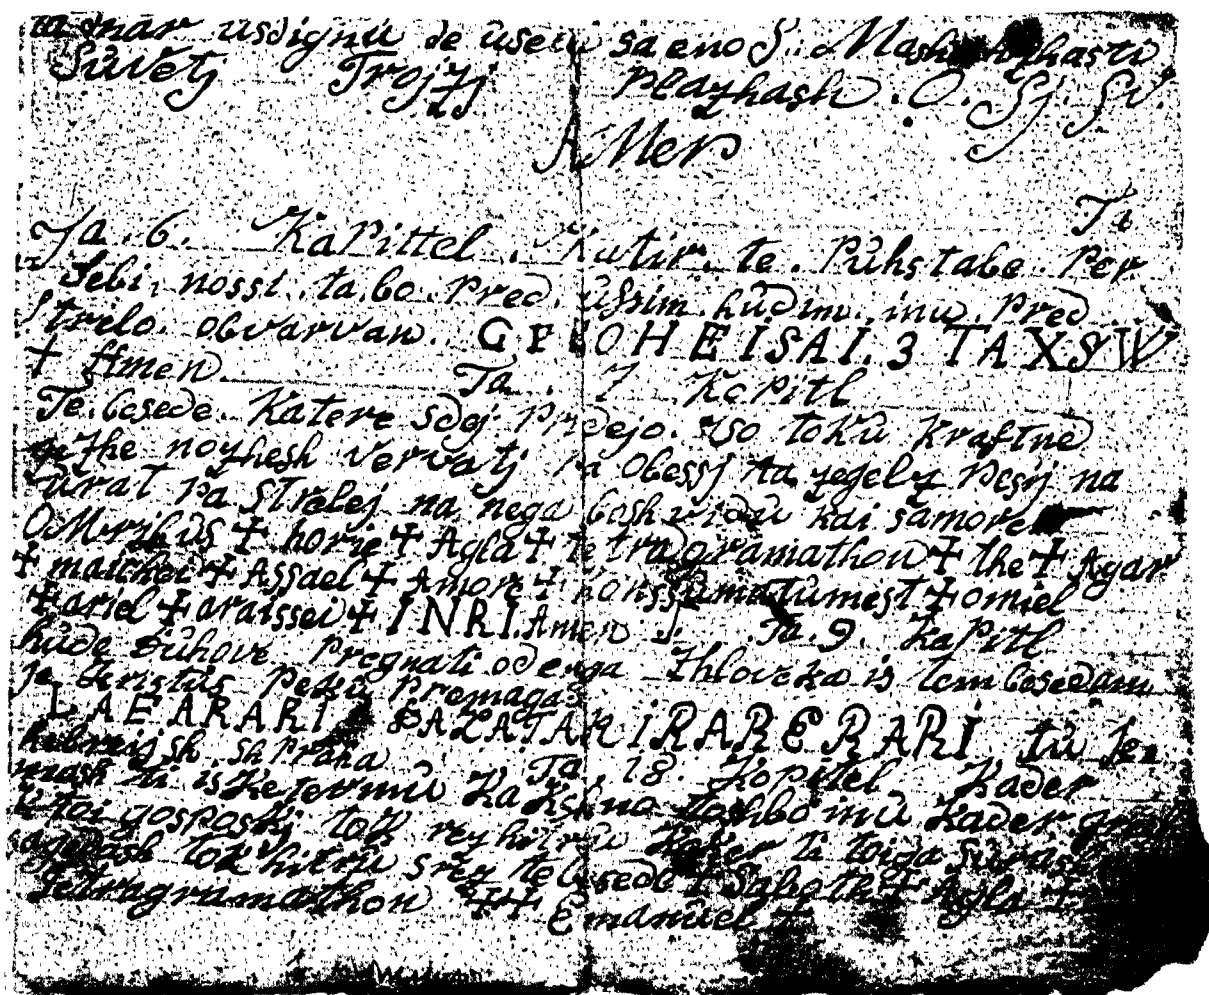 usdignu de usela sa eno S. Mash
Suvetj Trojzj plazhash. O. Sj. Sv.
AMen
Ta
Ja. 6. Kapittel. Katir. te. Puhstabe. Per
Sebi. nossi. ta. bo. Pred. ussim. hudim. inu. Pred
strelo. obvarvan. OHEISAI. 3 TAXSW
+ ffmen. Ta. 7 Kopitl
Te. besede. Katere sdej Pridejo. so toku Kraftne
zhe nozhesh vervatj Pa Obessj ta zegelz Pessj na
urat Pa strelej na nega bosh vidu kai samore
OMurikus + horie + Agla + tetra gramathon + the + Agar
+ malchei + Assael + Amore + Konssumatumest + omiel
+ ariel + araissei + INRI. Amen Ta. 9. Kapitl
hude duhove Pregnati od enga Zhloveka is tem besedam
je Kristus Pedu Premagas
LAEARARI IRARERARI. tu Je
hebreijsh. shpraha Ta. 18. Kopitel Kader
mash ti is Ketermu Ka toshbo inu Kader
k toi gosposkj tok rezhi Kader ti toiga
tok hitru srez te besede + Sabothe + Agla +
Tetragramathon ++ Emanuel +